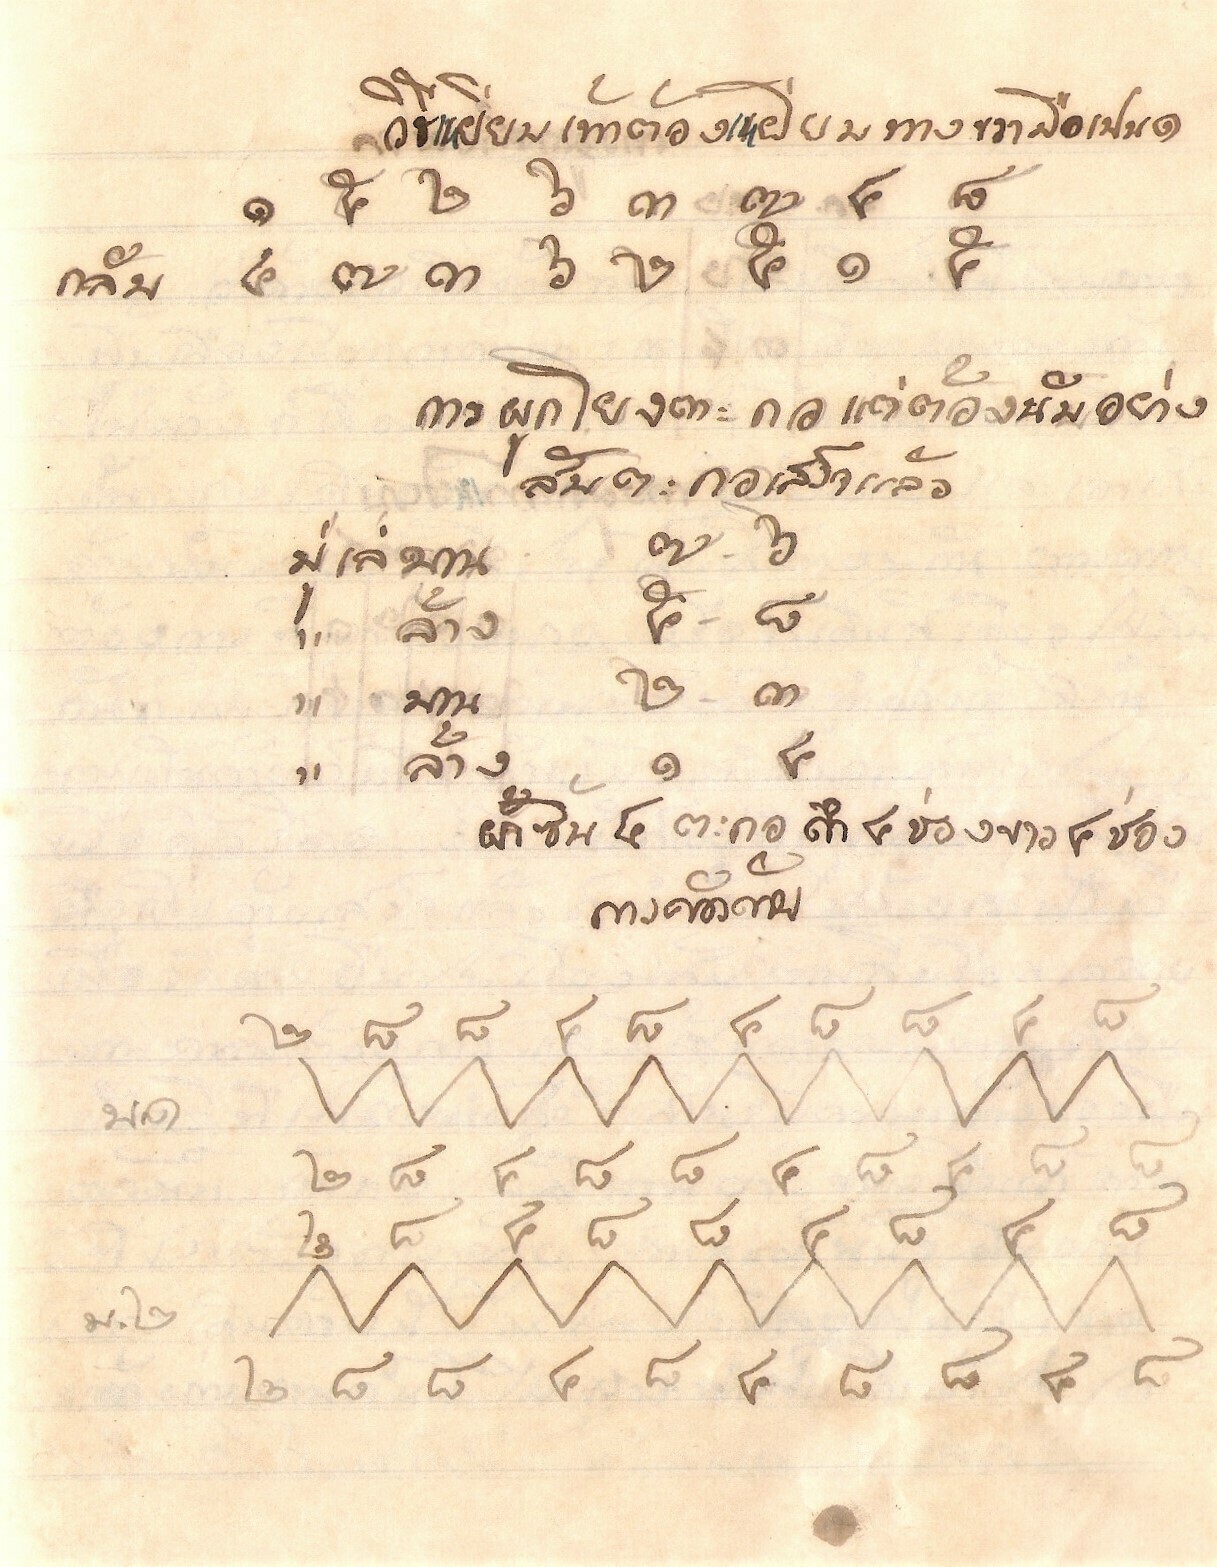 วิธีเหยียบเท้าต้องเหยียบทางขวามือเปน๑
๑ ๕ ๒ ๖ ๓ ๗ ๔ ๘
กลับ ๔ ๗ ๓ ๖ ๒ ๕ ๑ ๕
การผูกโยงตะกอแต่ต้องนับอย่าง
ลับตะกอเสร็จแล้ว
มู่เล่บาน ๗ - ๖
" ล้าง ๕ - ๘
" บาน ๒ - ๓
" ล้าง ๑ ๔
ผ้าซิ่น ๔ ตะกอดำ ๔ ช่องขาว ๔ ช่อง
๒ ๘ ๘ ๔ ๘ ๔ ๘ ๘ ๔ ๘
ม.๑
๒ ๘ ๔ ๘ ๘ ๔ ๘ ๔ ๘ ๘
๒ ๘ ๔ ๘ ๘ ๔ ๘ ๔ ๘
ม.๒
๒ ๘ ๘ ๔ ๘ ๔ ๘ ๘ ๔ ๘